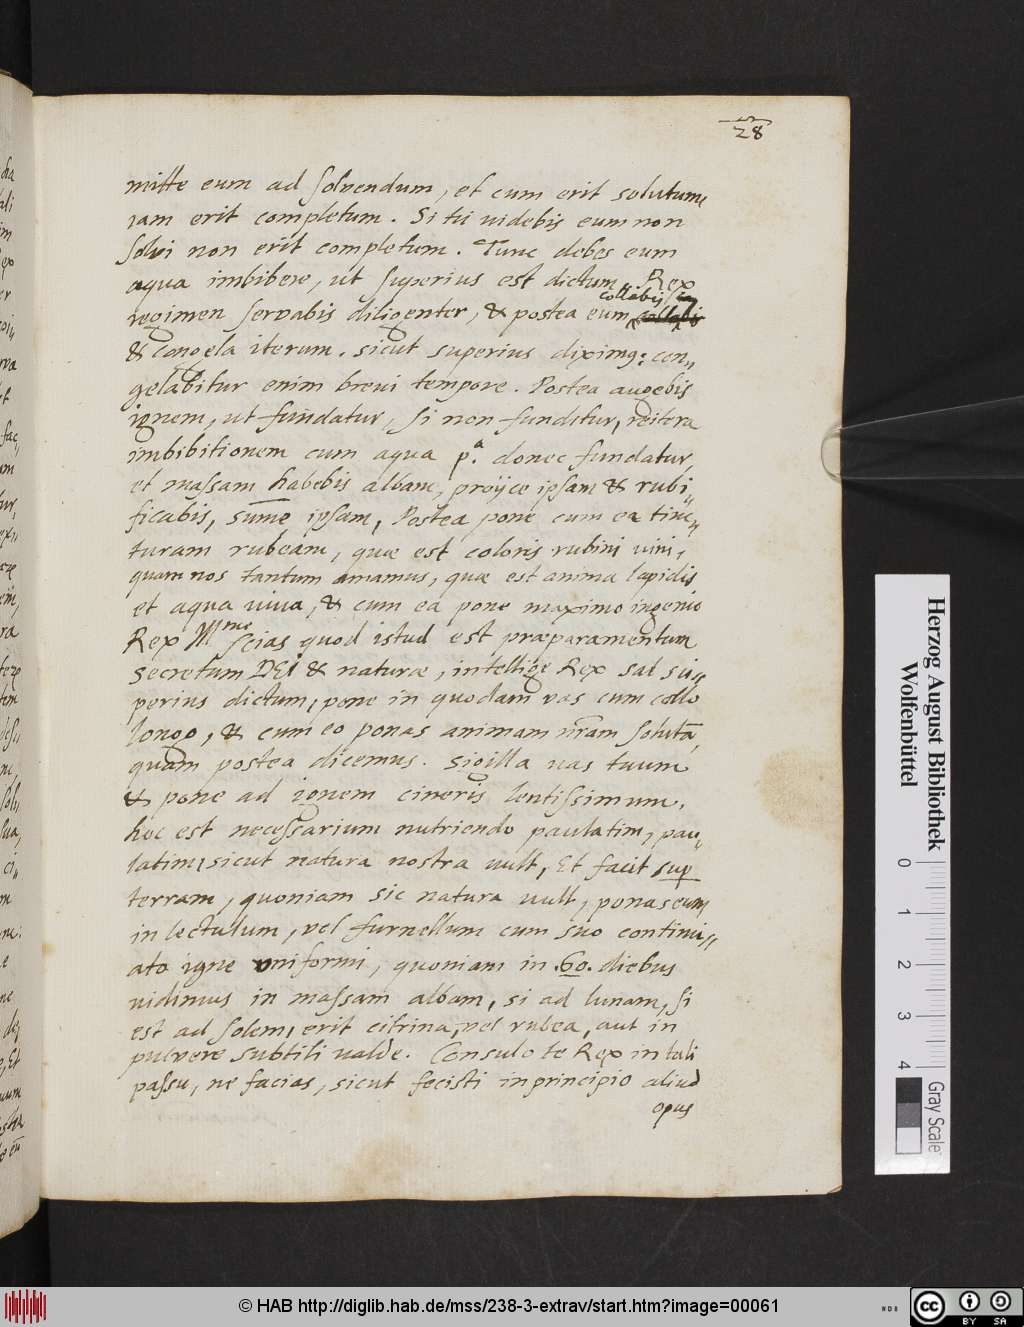 28
mitte eum ad solvendum, et cum erit solutum,
iam erit completum. Si tu uidebis eum non
solvi non erit completum. Tunc debes eum
aqua imbibere, ut superius est dictum. Rex
regimen servabis diligenter, & postea eum collabis
& congela iterum. sicut superius diximq: con„
gelabitur enim breui tempore. Postea augebis
ignem, ut fundatur, si non funditur, reitera
imbibitionem cum aqua p.ª donec fundatur,
et massam habebis albam, proijce ipsam & rubi„
ficabis, sume ipsam, Postea pone cum ea tinc„
turam rubeam, quæ est coloris rubini uini,
quam nos tantum amamus, quæ est anima lapidis
et aqua uiua, & cum ea pone maximo ingenio
Rex Mme scias quod istud est præparamentum
secretum DEI & naturæ, intellige Rex sal su„
perius dictum, pone in quodam vas cum collo
longo, & cum eo ponas animam nr̃am solutã,
quam postea dicemus. Sigilla uas tuum
& pone ad ignem cineris lentissimum,
hoc est necessarium nutriendo paulatim, pau„
latim, sicut natura nostra uult, Et facit sup
terram, quoniam sic natura uult, ponas eum,
in lectulum, vel furnellum cum suo continu„
ato igne vniformi, quoniam in .60. diebus
uidimus in massam albam, si ad lunam, si
est ad solem, erit citrina, vel rubea, aut in
pulvere subtili ualde. Consulo te Rex in tali
passu, ne facias, sicut fecisti in principio aliud
opus
Herzog August Bibliothek
Wolfenbüttel
0 1 2 3 4
Gray Scale
© HAB http://diglib.hab.de/mss/238-3-extrav/start.htm?image=00061
cc BY SA